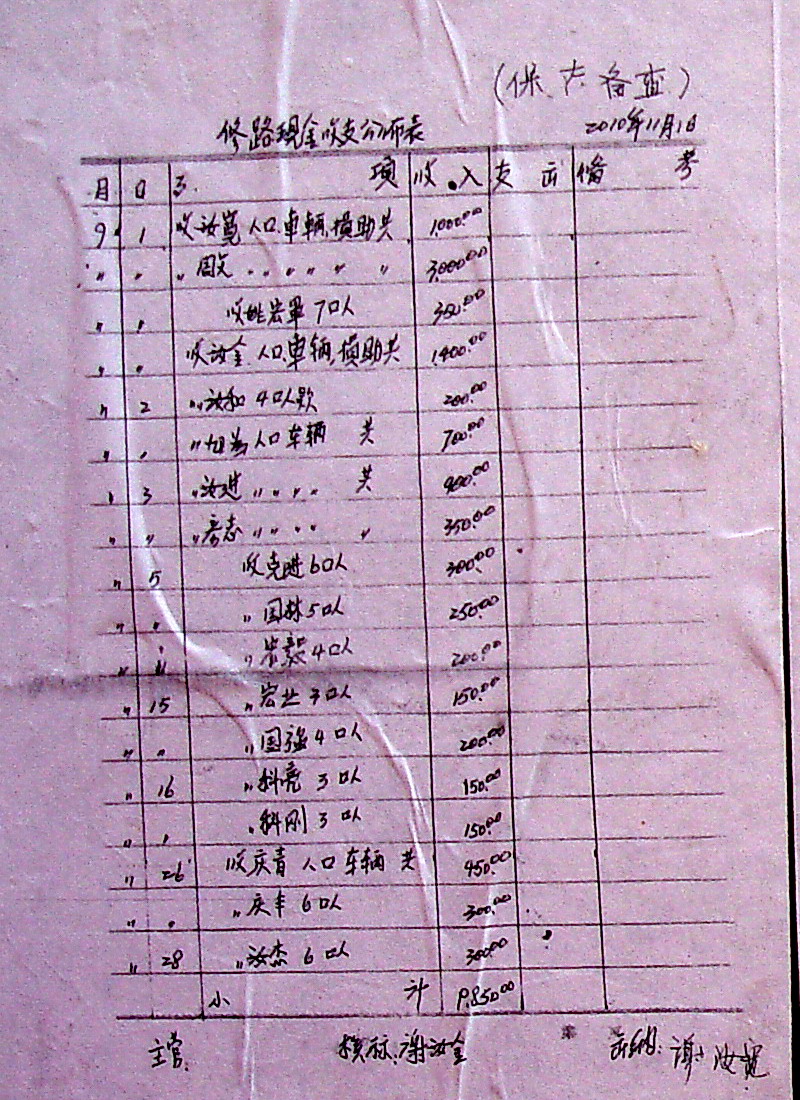 (保存备查)
修路现金收支公布表
2010年11月1日
月 日 事 项 收入 支出 备考
9 1 收汝宽人口.车辆.捐助共 1,000.00
〃 〃 〃国文 〃 〃 〃 〃 〃 3,000.00
〃 〃 收姚宏军7口人 350.00
〃 〃 收汝金人口.车辆.捐助共 1,400.00
〃 2 〃汝和4口人款 200.00
〃 〃 人口车辆 共 700.00
〃 3 〃汝进 〃 〃 〃 〃 共 400.00
〃 〃 〃彦志 〃 〃 〃 〃 〃 350.00
〃 5 收克进6口人 300.00
〃 〃 〃国林5口人 250.00
〃 11 〃宏毅4口人 200.00
〃 15 〃宏业3口人 150.00
〃 〃 〃国强4口人 200.00
〃 16 〃科亮3口人 150.00
〃 〃 〃科刚3口人 150.00
〃 26 收庆青 人口车辆 共 450.00
〃 〃 〃庆丰6口人 300.00
〃 28 〃汝杰6口人 300.00
小 计 9,850.00
主管: 谢汝金 出纳: 谢汝宽